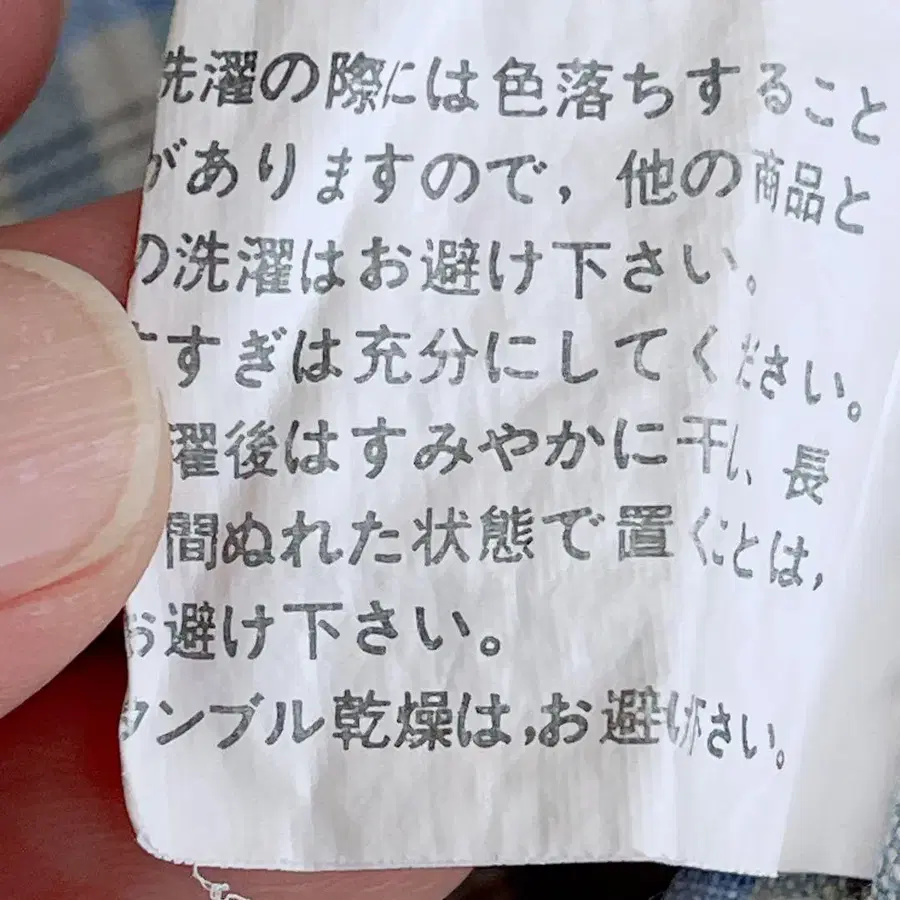 洗濯の際には色落ちすること
がありますので，他の商品と
の洗濯はお避け下さい。
すすぎは充分にしてください。
濯後はすみやかに干し、長
間ぬれた状態で置くことは，
お避け下さい。
タンブル乾燥は，お避け下さい。